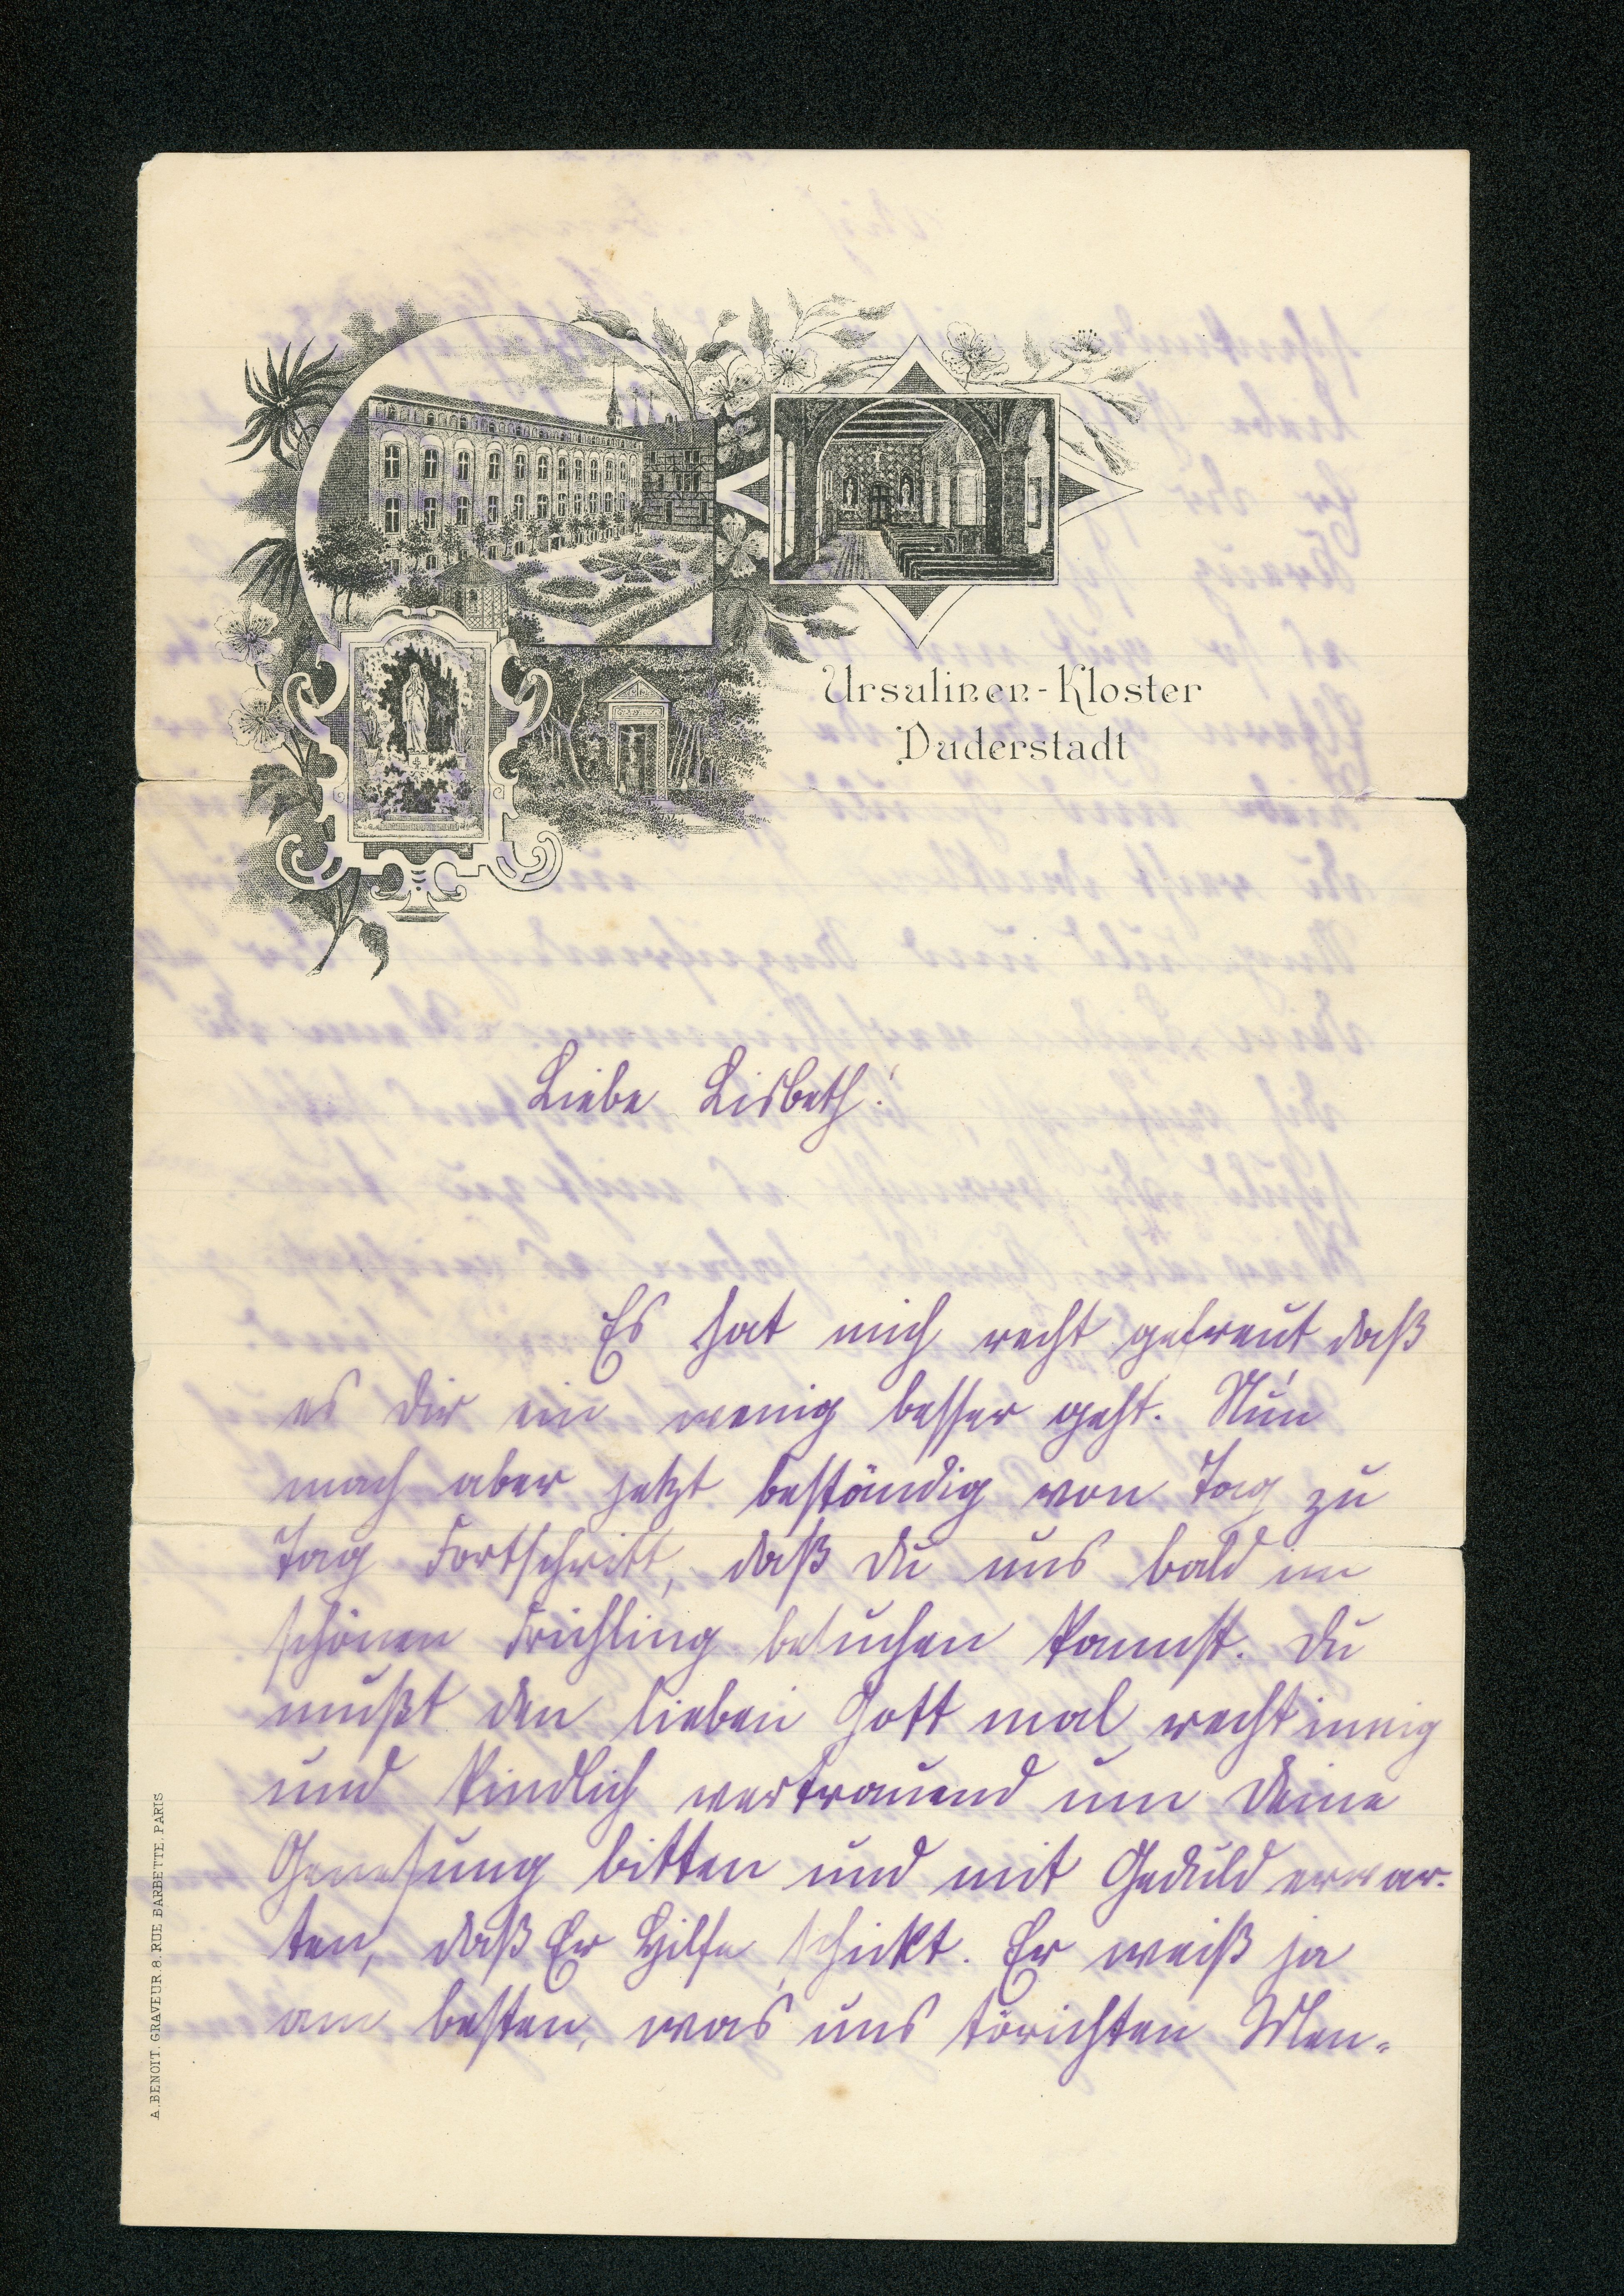 Ursulinen-Kloster
Duderstadt
Liebe Lisbeth!
Es hat mich recht gefreut daß
es Dir ein wenig besser geht. Nun
mach aber jetzt beständig von Tag zu
Tag Fortschritt, daß Du uns bald im
schönen Frühling besuchen kannst. Du
mußt den lieben Gott mal recht innig
und kindlich vertrauend um Deine
Genesung bitten und mit Geduld erwar-
ten, daß Er Hilfe schickt. Er weiß ja
am besten, was uns törichten Men-
A. BENOIT. GRAVEUR. 8. RUE BARBETTE. PARIS